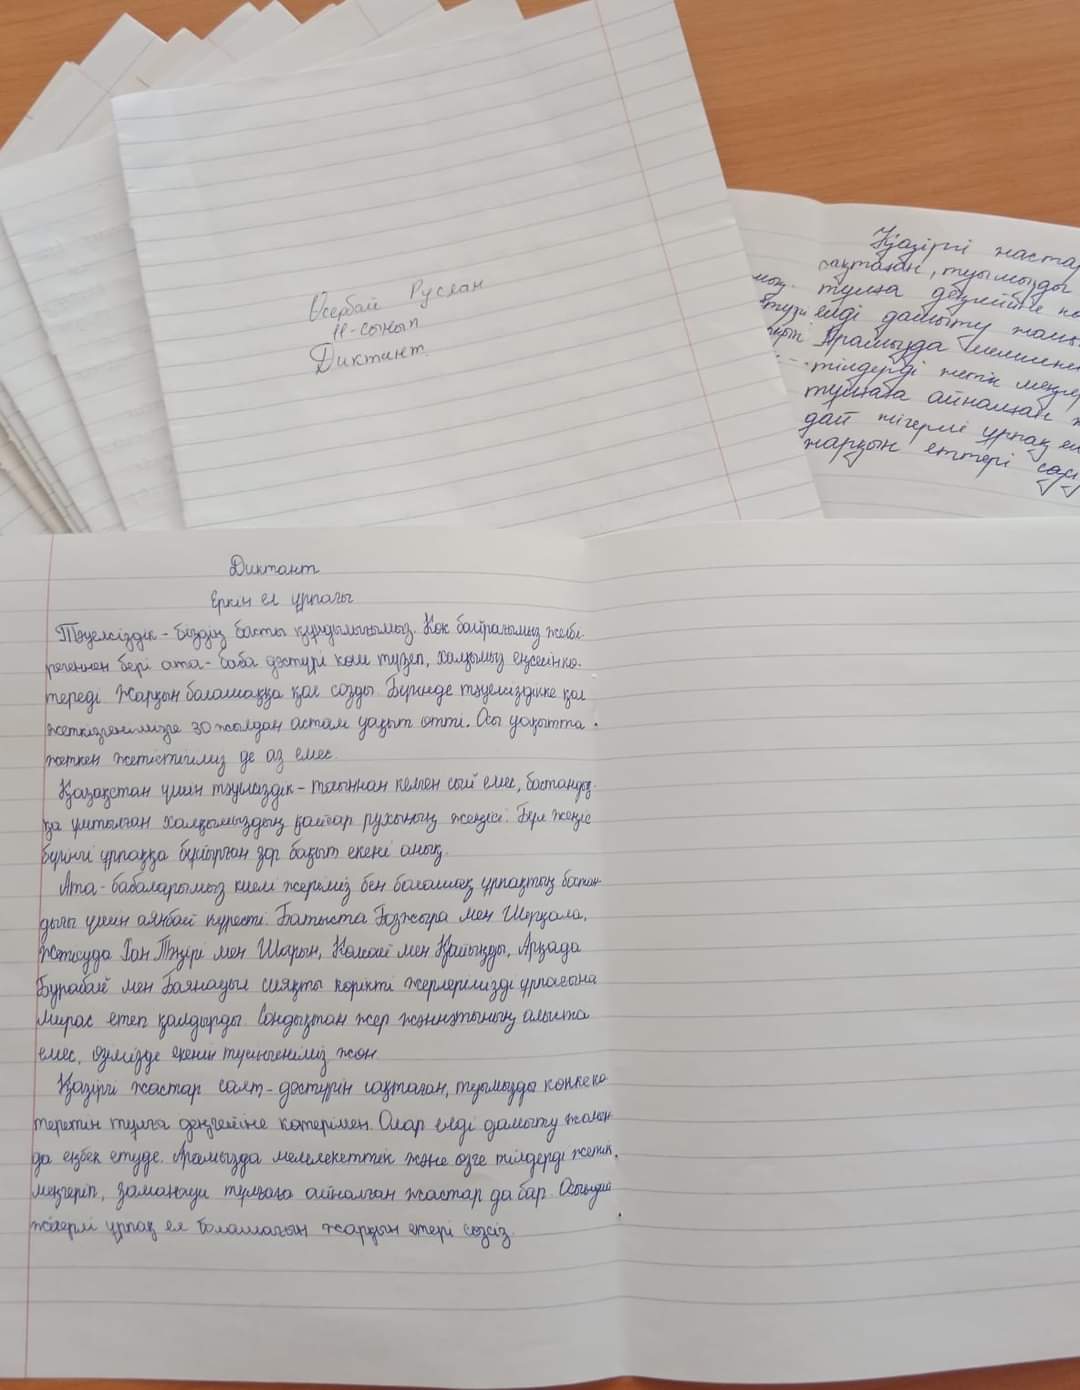 Өсербай Руслан
11-сынып
Диктант
Қазіргі жастар
сақтаған, туымызды
тұлға деңгейіне
елді дамыту
Арамызда
тілдерді жетік меңгер
тұлғаға айналған
дай жігерлі ұрпақ ел
жарқын еттері
Диктант
Еркін ел ұрпағы
Тәуелсіздік - біздің басты құндылығымыз. Көк байрағымыз желбі-
регеннен бері ата-баба дәстүрі көш түзеп, халқымыз еңсесін кө-
тереді. Жарқын болашаққа қол созды. Бүгінде тәуелсіздікке қол
жеткізгенімізге 30 жылдан астам уақыт өтті. Осы уақытта
жеткен жетістігіміз де аз емес.
Қазақстан үшін тәуелсіздік - тосыннан келген сый емес, бостандық-
қа ұмтылған халқымыздың қайсар рухының жеңісі. Бұл жеңіс
бүгінгі ұрпаққа бұйырған зор бақыт екені анық.
Ата-бабаларымыз киелі жеріміз бен болашақ ұрпақтың бостан-
дығы үшін аянбай күресті. Батыста Бозжыра мен Шерқала,
Жетісуда Хан Тәңірі мен Шарын, Көлсай мен Қайыңды, Арқада
Бурабай мен Баянауыл сияқты көрікті жерлерімізді ұрпағына
мирас етеп қалдырды. Сондықтан жер жәннәтының алыста
емес, өзімізде екенін түсінгеніміз жөн.
Қазіргі жастар салт-дәстүрін сақтаған, туымызды көкке кө-
теретін тұлға деңгейіне көтерілген. Олар елді дамыту жолын-
да еңбек етуде. Арамызда мемлекеттік және өзге тілдерді жетік
меңгеріп, заманауи тұлғаға айналған жастар да бар. Осындай
жігерлі ұрпақ ел болашағын жарқын етері сөзсіз.